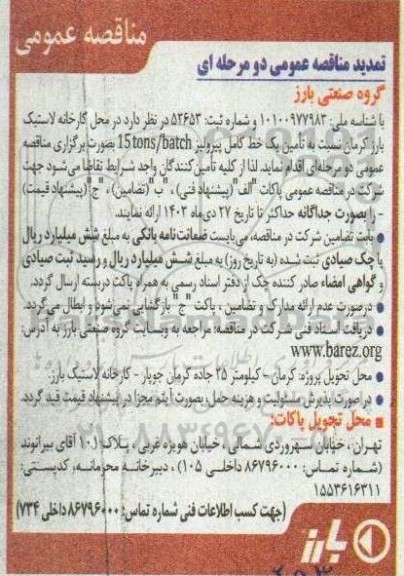 مناقصه عمومی
تمدید مناقصه عمومی دو مرحله ای
گروه صنعتی بارز
با شناسه ملی: ۱۰۱۰۰۹۷۷۹۸۳ و شماره ثبت: ۵۲۶۵۳ در نظر دارد در محل کارخانه لاستیک
بارز کرمان نسبت به تأمین یک خط کامل پیرولیز 15tons/batch بصورت برگزاری مناقصه
عمومی دو مرحله‌ای اقدام نماید. لذا از کلیه تأمین کنندگان واجد شرایط تقاضا می‌شود جهت
شرکت در مناقصه عمومی پاکات "الف"(پیشنهاد فنی) ، "ب"(تضامین) ، "ج"(پیشنهاد قیمت)
- را بصورت جداگانه حداکثر تا تاریخ ۲۷ دی‌ماه ۱۴۰۳ ارائه نمایند.
● بابت تضامین شرکت در مناقصه، می‌بایست ضمانت‌نامه بانکی به مبلغ شش میلیارد ریال
یا چک صیادی ثبت شده (به تاریخ روز) به مبلغ شش میلیارد ریال و رسید ثبت صیادی
و گواهی امضاء صادر کننده چک از دفتر اسناد رسمی به همراه پاکت دربسته ارسال گردد.
● درصورت عدم ارائه مدارک و تضامین ، پاکت "ج" بازگشایی نمی‌شود و ابطال می‌گردد.
● دریافت اسناد فنی شرکت در مناقصه: مراجعه به وبسایت گروه صنعتی بارز به آدرس:
www.barez.org
● محل تحویل پروژه: کرمان - کیلومتر ۲۵ جاده کرمان جوپار - کارخانه لاستیک بارز.
● در صورت پذیرش مسئولیت و هزینه حمل، بصورت آیتم مجزا در پیشنهاد قیمت قید گردد.
■ محل تحویل پاکات:
تهران، خیابان سهروردی شمالی، خیابان هویزه غربی، پلاک ۱۰۱ آقای بیرانوند
(شماره تماس: ۸۶۷۹۶۰۰۰ داخلی ۱۰۵) ، دبیرخانه محرمانه، کدپستی:
۱۵۵۳۶۱۶۳۱۱
(جهت کسب اطلاعات فنی شماره تماس: ۸۶۷۹۶۰۰۰ داخلی ۷۳۴)
بارز